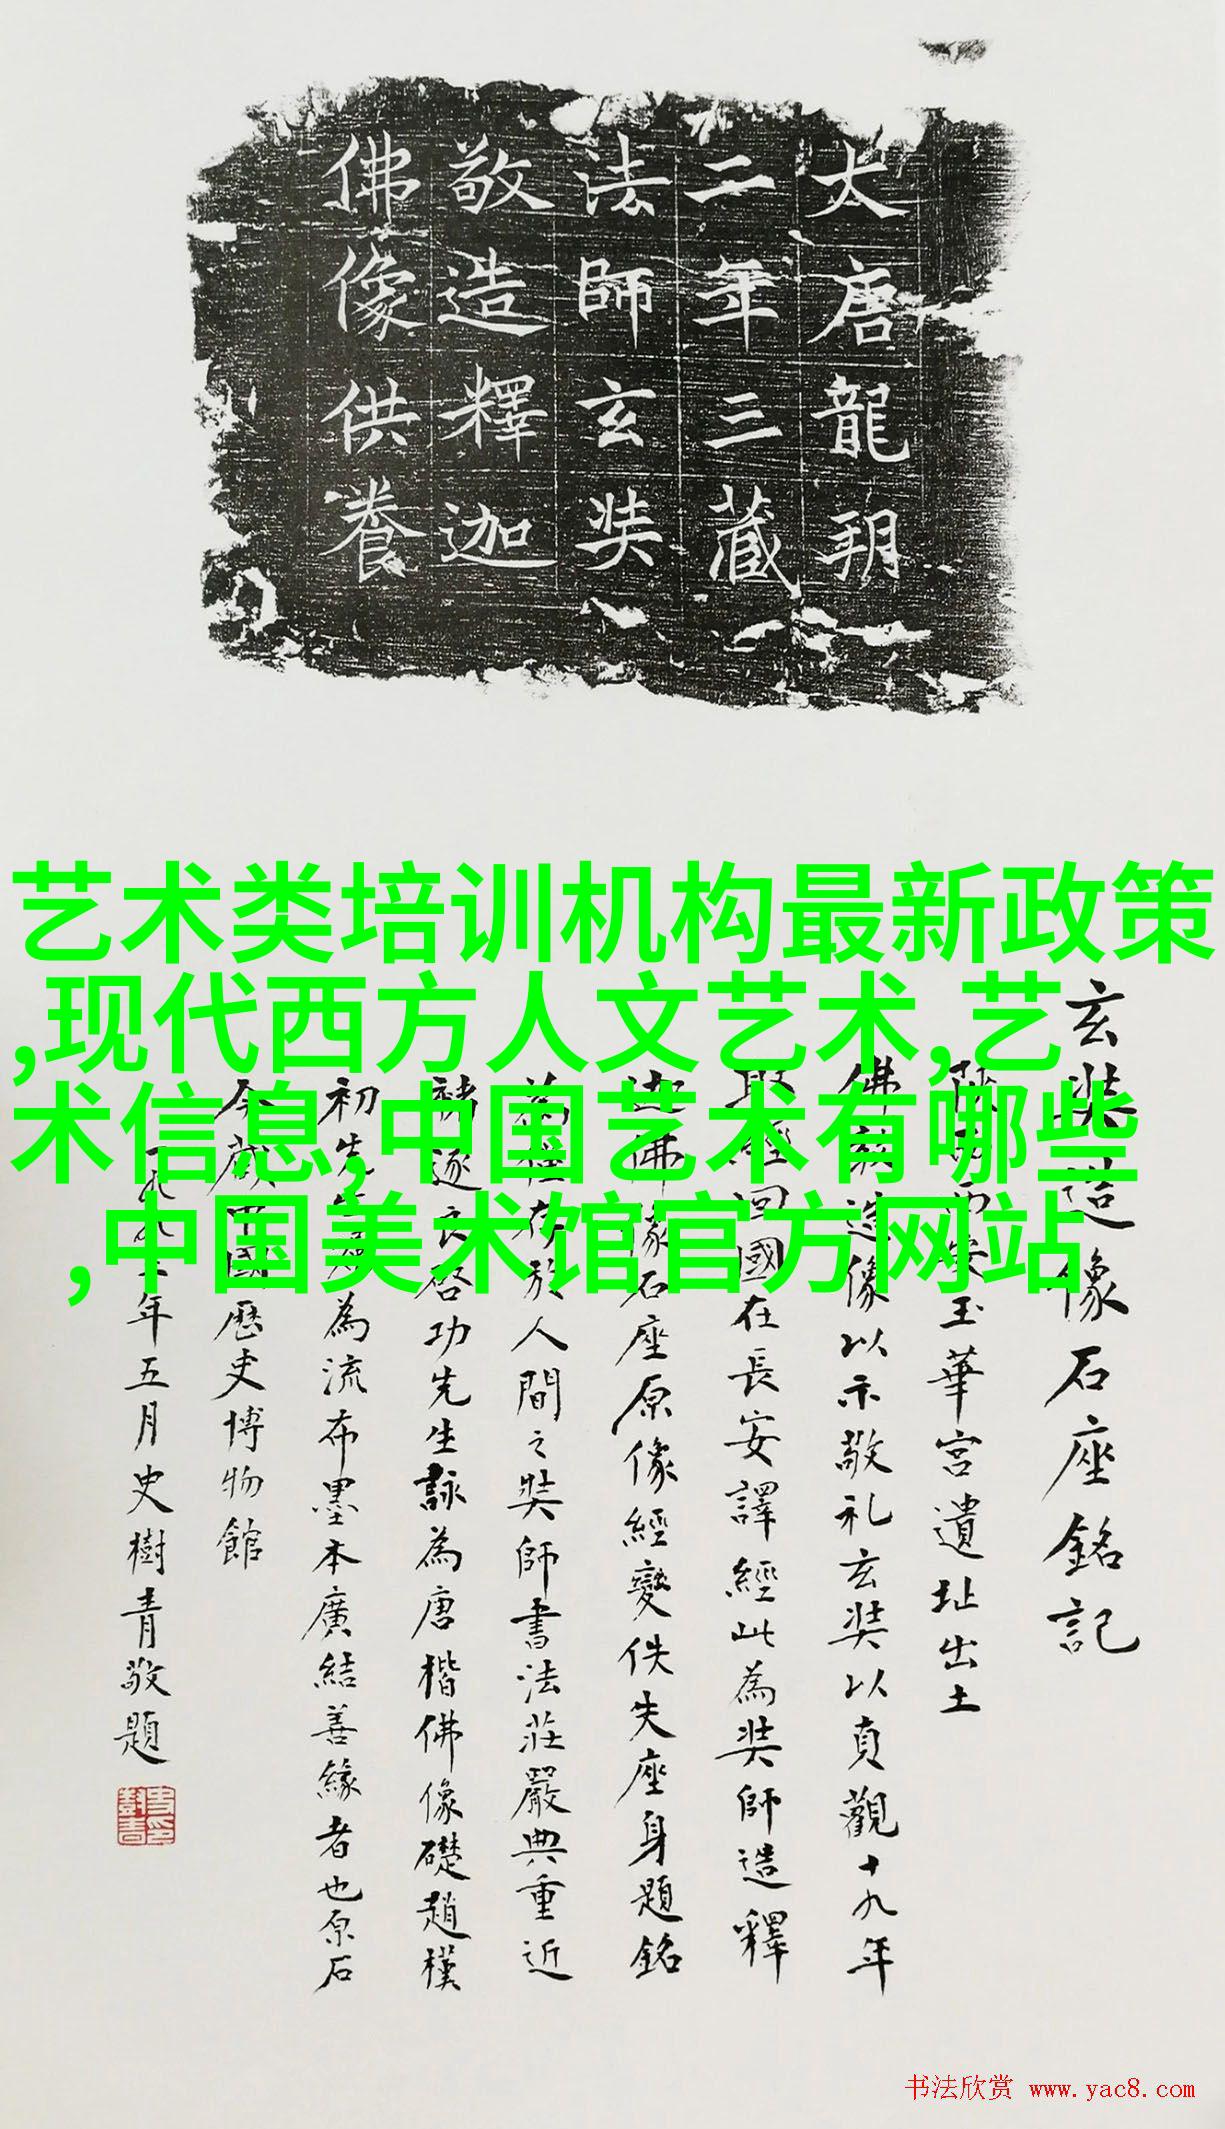 大唐龍朔
二年三藏
法師玄奘
敬造釋迦
佛像供養
艺术类培训机构最新政策
,现代西方人文艺术,艺
术信息,中国艺术有哪些
,中国美术馆官方网站
玄奘造像石座銘記
安玉華宮遺址出土
佛造像以示敬礼玄奘以貞觀十九年
取經回國在長安譯經此為奘師造釋
迦佛像石座原像經變佚失座身題銘
為僅存於人間之奘師書法莊嚴典重近
褚遂良啓功先生詠為唐楷佛像礎趙樸
初先生為流布墨本廣結善緣者也原石
今藏中國歷史博物館
一九九三年五月史樹青敬題
书法欣赏 www.yac8.com